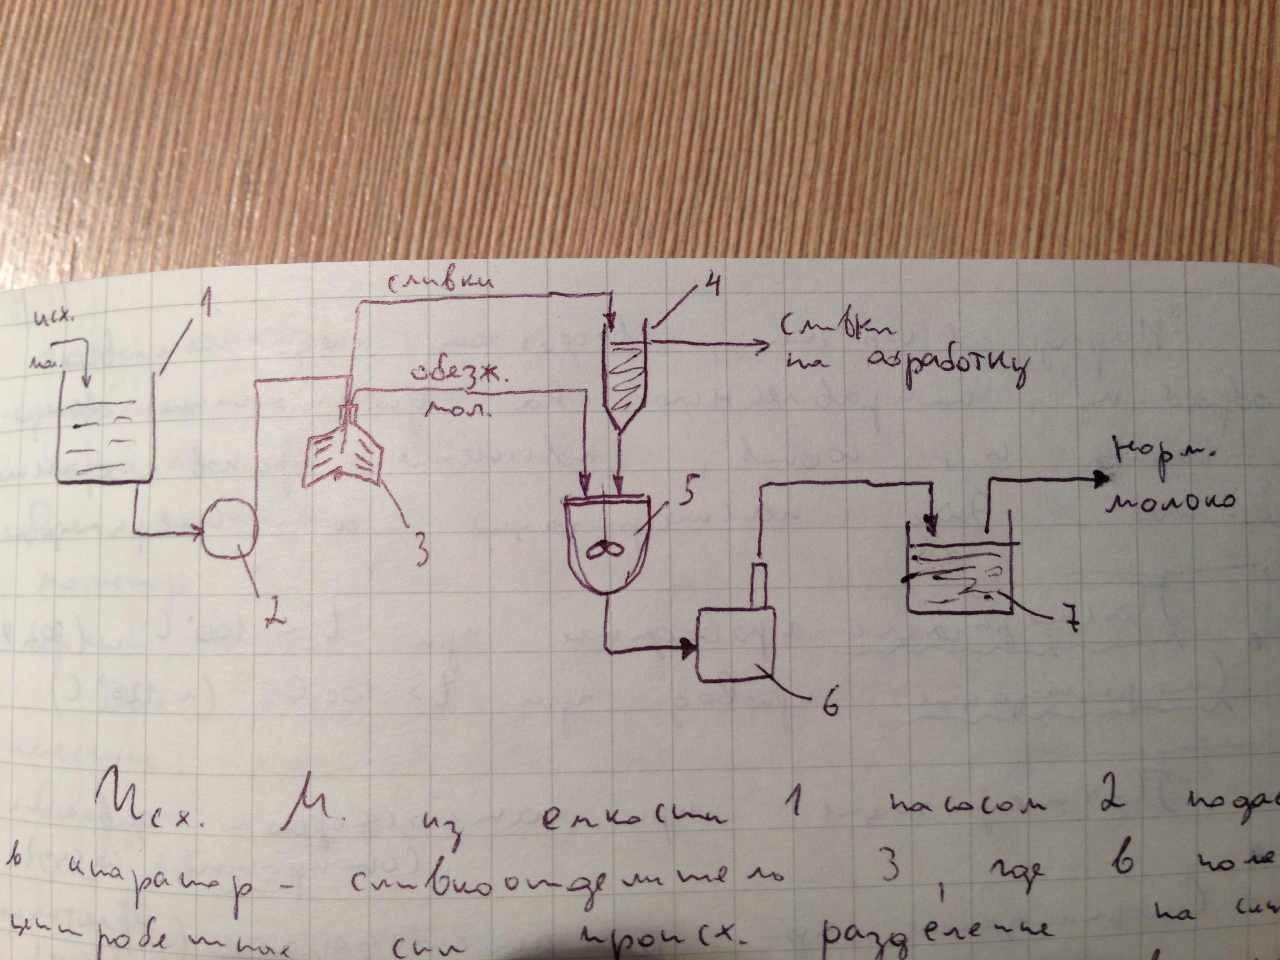 сливки
4
исх.
1
сливки
на обработку
м.
обезж.
мол.
Норм.
молоко
5
3
2
7
6
Исх. М. из емкости 1 насосом 2 подае
в аппарат - сливкоотделитель 3, где в поле
центробежных сил происх. разделение на сли